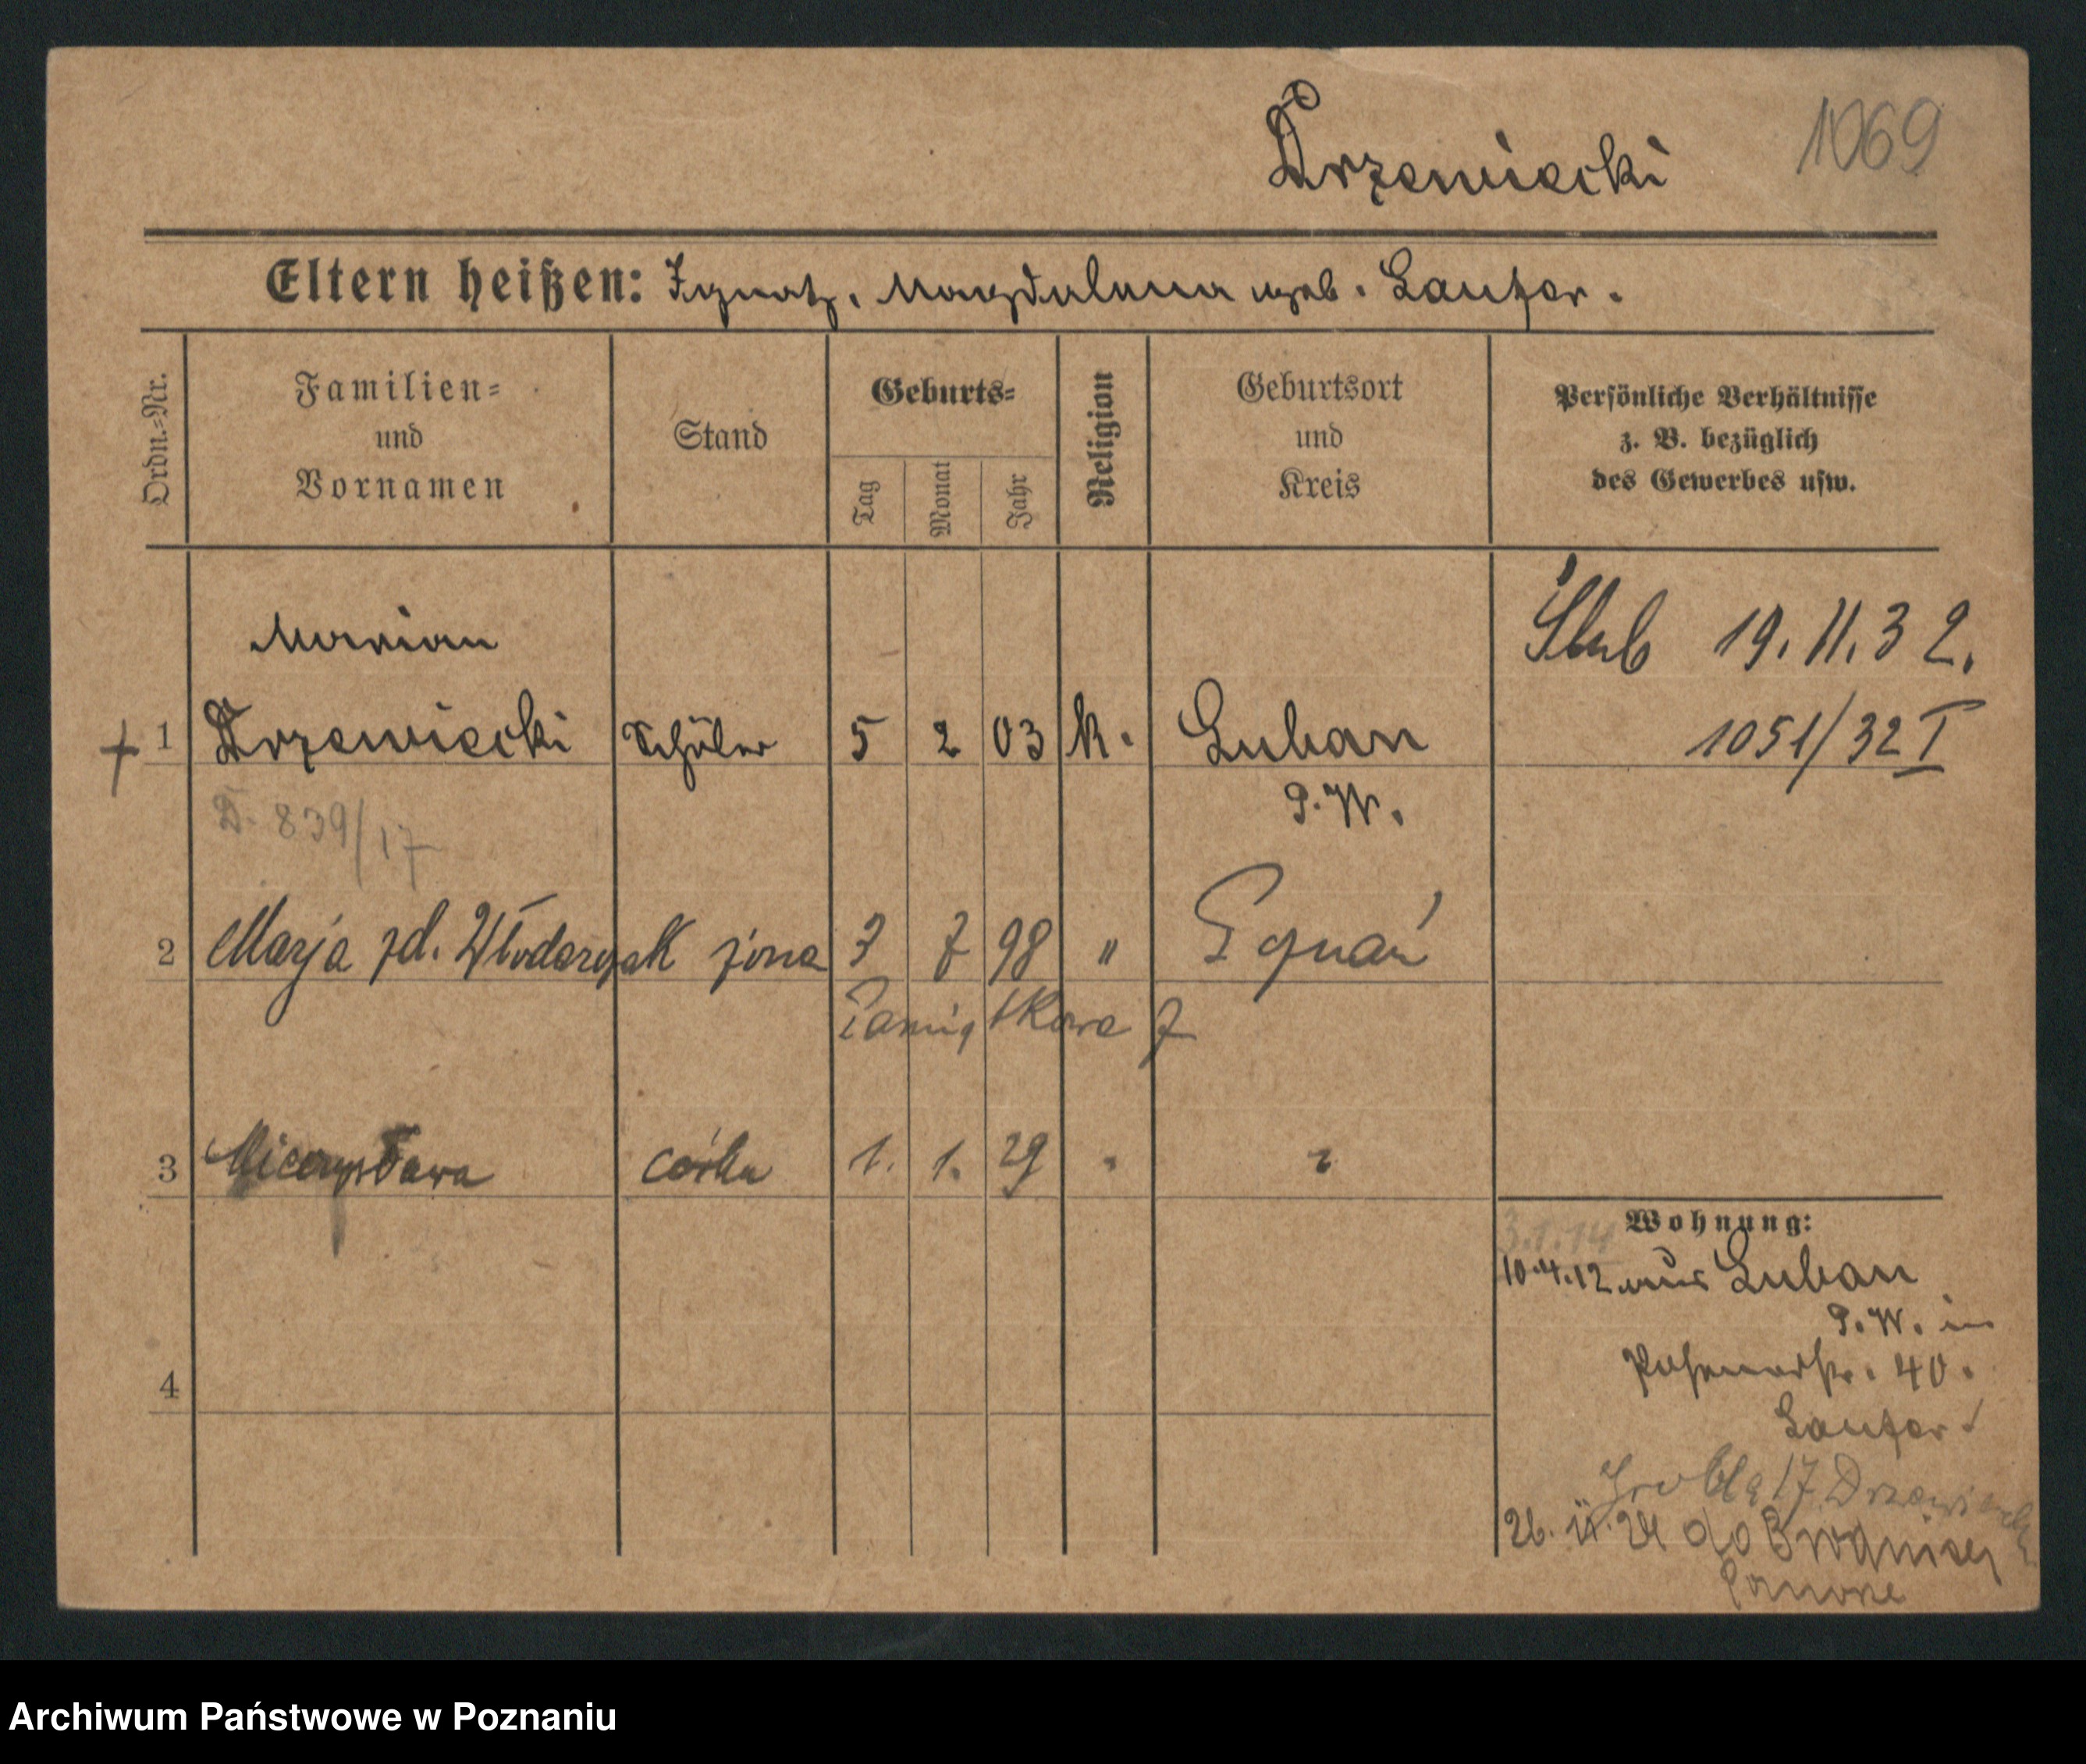 Drzewiecki 1069
Eltern heißen: Ignatz, Magdalena geb. Lanfer.
Ordn.-Nr. Familien- und Vornamen Stand Geburts- Tag Monat Jahr Religion Geburtsort und Kreis Persönliche Verhältnisse z. B. bezüglich des Gewerbes usw.
Marian Ślub 19.11.32.
1 Drzewiecki Schüler 5 2 03 k. Luban 1051/32 I
P.W.
D. 839/17
2 Marja zd. Włodarczak żona 7 98 " Poznań
Pamiątkowa 7
3 Mieczysława córka 1. 1. 29 "
Wohnung:
3.1.14
10.4.12 aus Luban
P.W. in
Posenerstr. 40.
Lanfer
4
Grobla 17 Drzewiecki
26. 11. 24 do Brodnicy